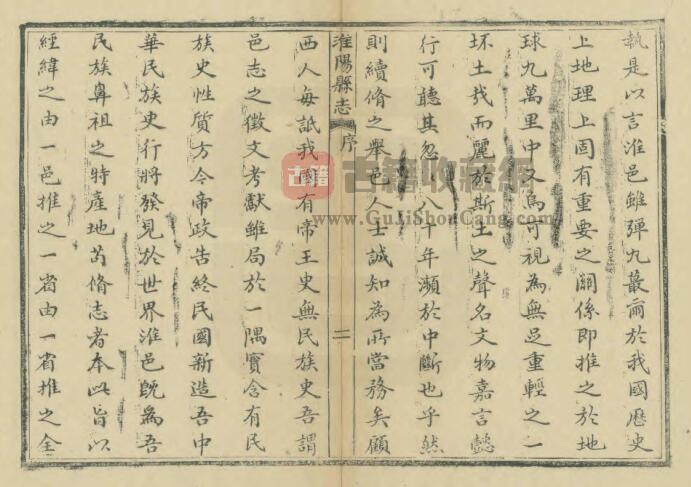 執是以言淮邑雖彈丸蕞爾於我國歷史
上地理上固有重要之關係即推之於地
球九萬里中又烏可視為無足重輕之一
坏土哉而麗於斯土之聲名文物嘉言懿
行可聽其忽八十年瀕於中斷也乎然
則續脩之舉邑人士誠知為所當務矣顧
淮陽縣志 序 二
西人每詆我國有帝王史無民族史吾謂
邑志之徵文考獻雖局於一隅實含有民
族史性質方今帝政告終民國新造吾中
華民族史行將發見於世界淮邑既為吾
民族鼻祖之特產地苟脩志者本此旨以
經緯之由一邑推之一省由一省推之全
古籍 古籍收藏網
www.GuJiShouCang.com